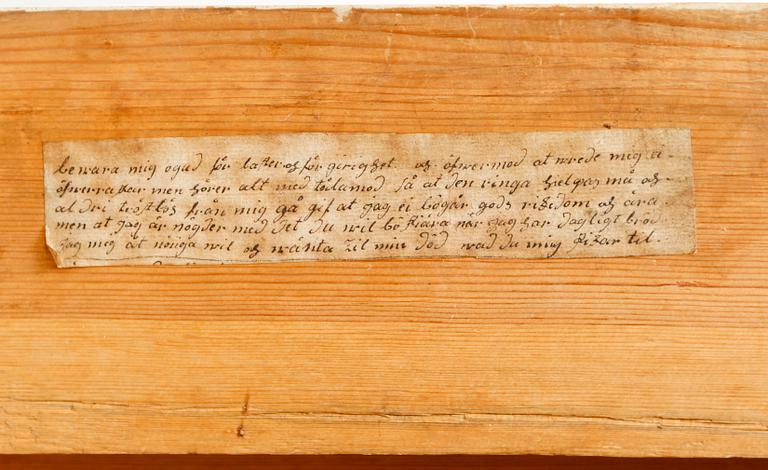 bewara mig o gud för laster och för girighet. och öfwermod at wrede mig a
öfwerraskar men hörer alt med tålamod så at den ringa hielpas må och
al dri tröstlös från mig gå gif at jag ei begär gods rikedom och ära
men at jag är nögder med det du wil beskiära när jag har dagligt bröd
jag mig åt nöiga wil och wänta til min död wad du mig skikar til.